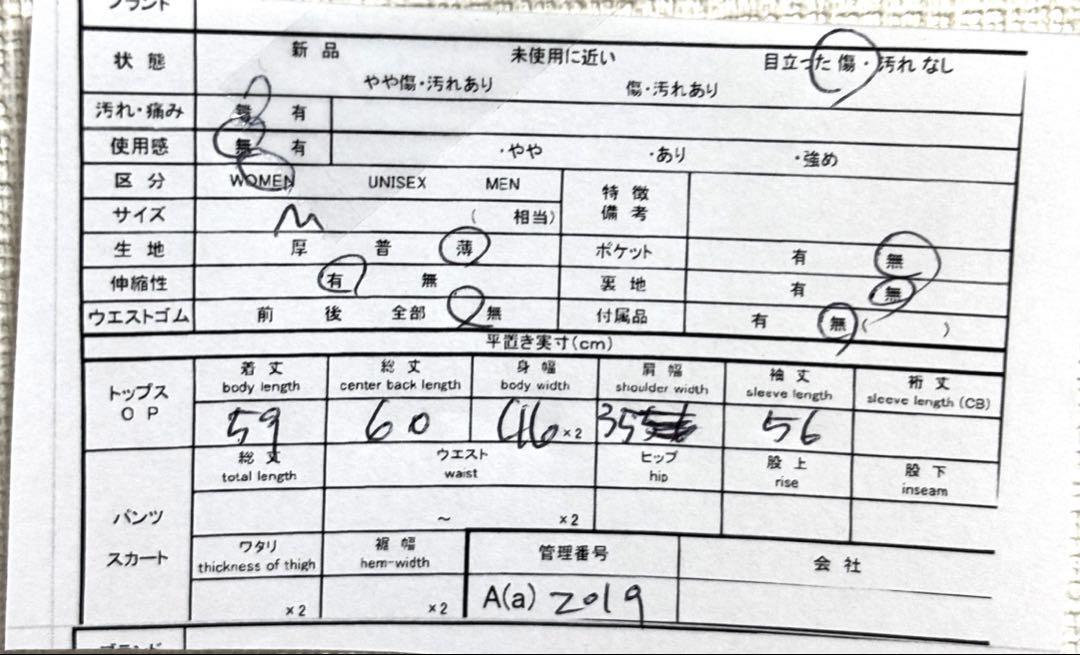 ブランド
状態 新品 未使用に近い 目立った傷・汚れなし
やや傷・汚れあり 傷・汚れあり
汚れ・痛み 無 有
使用感 無 有 ・やや ・あり ・強め
区分 WOMEN UNISEX MEN 特徴備考
サイズ M ( 相当)
生地 厚 普 薄 ポケット 有 無
伸縮性 有 無 裏地 有 無
ウエストゴム 前 後 全部 無 付属品 有 無 ( )
平置き実寸(cm)
トップス OP 着丈 総丈 身幅 肩幅 袖丈 裄丈
body length center back length body width shoulder width sleeve length sleeve length (CB)
59 60 46 ×2 35 56
総丈 ウエスト ヒップ 股上 股下
total length waist hip rise inseam
パンツ ～ ×2
スカート ワタリ 裾幅 管理番号 会社
thickness of thigh hem-width
×2 ×2 A(a) 2019
ブランド